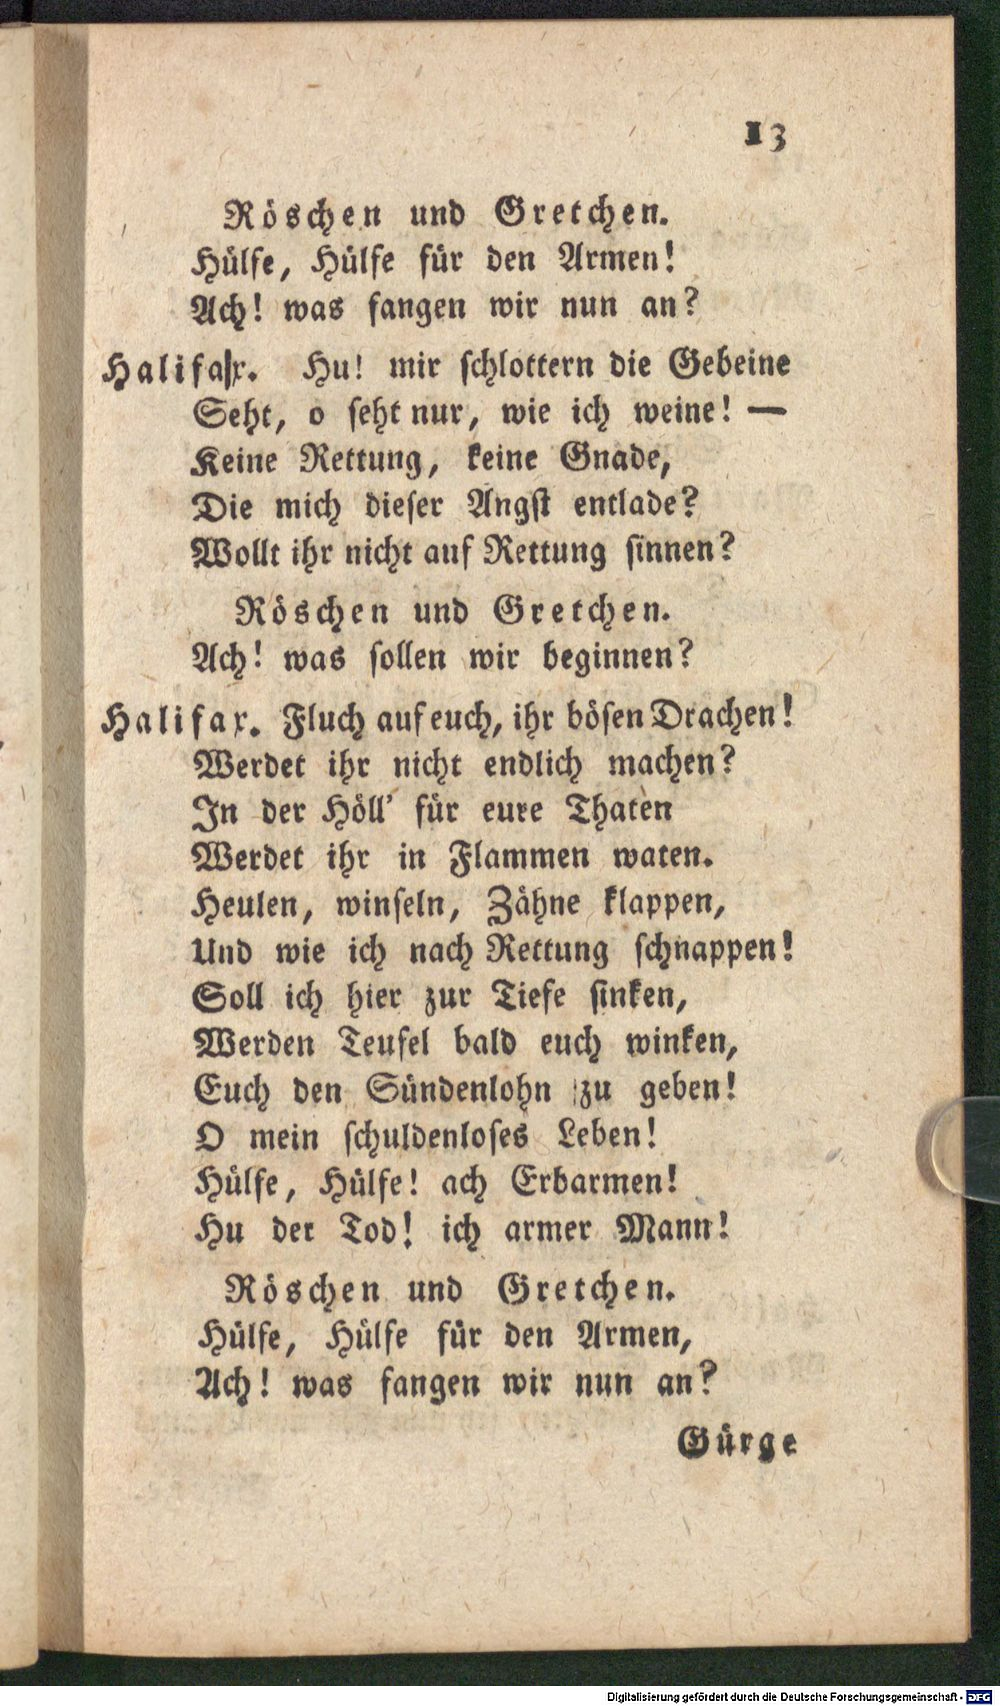 13
Röschen und Gretchen.
Hülfe, Hülfe für den Armen!
Ach! was fangen wir nun an?
Halifaſx. Hu! mir ſchlottern die Gebeine
Seht, o ſeht nur, wie ich weine! —
Keine Rettung, keine Gnade,
Die mich dieſer Angſt entlade?
Wollt ihr nicht auf Rettung ſinnen?
Röschen und Gretchen.
Ach! was ſollen wir beginnen?
Halifax. Fluch auf euch, ihr böſen Drachen!
Werdet ihr nicht endlich machen?
In der Höll' für eure Thaten
Werdet ihr in Flammen waten.
Heulen, winſeln, Zähne klappen,
Und wie ich nach Rettung ſchnappen!
Soll ich hier zur Tiefe ſinken,
Werden Teufel bald euch winken,
Euch den Sündenlohn zu geben!
O mein ſchuldenloſes Leben!
Hülfe, Hülfe! ach Erbarmen!
Hu der Tod! ich armer Mann!
Röschen und Gretchen.
Hülfe, Hülfe für den Armen,
Ach! was fangen wir nun an?
Gürge
Digitalisierung gefördert durch die Deutsche Forschungsgemeinschaft - DFG